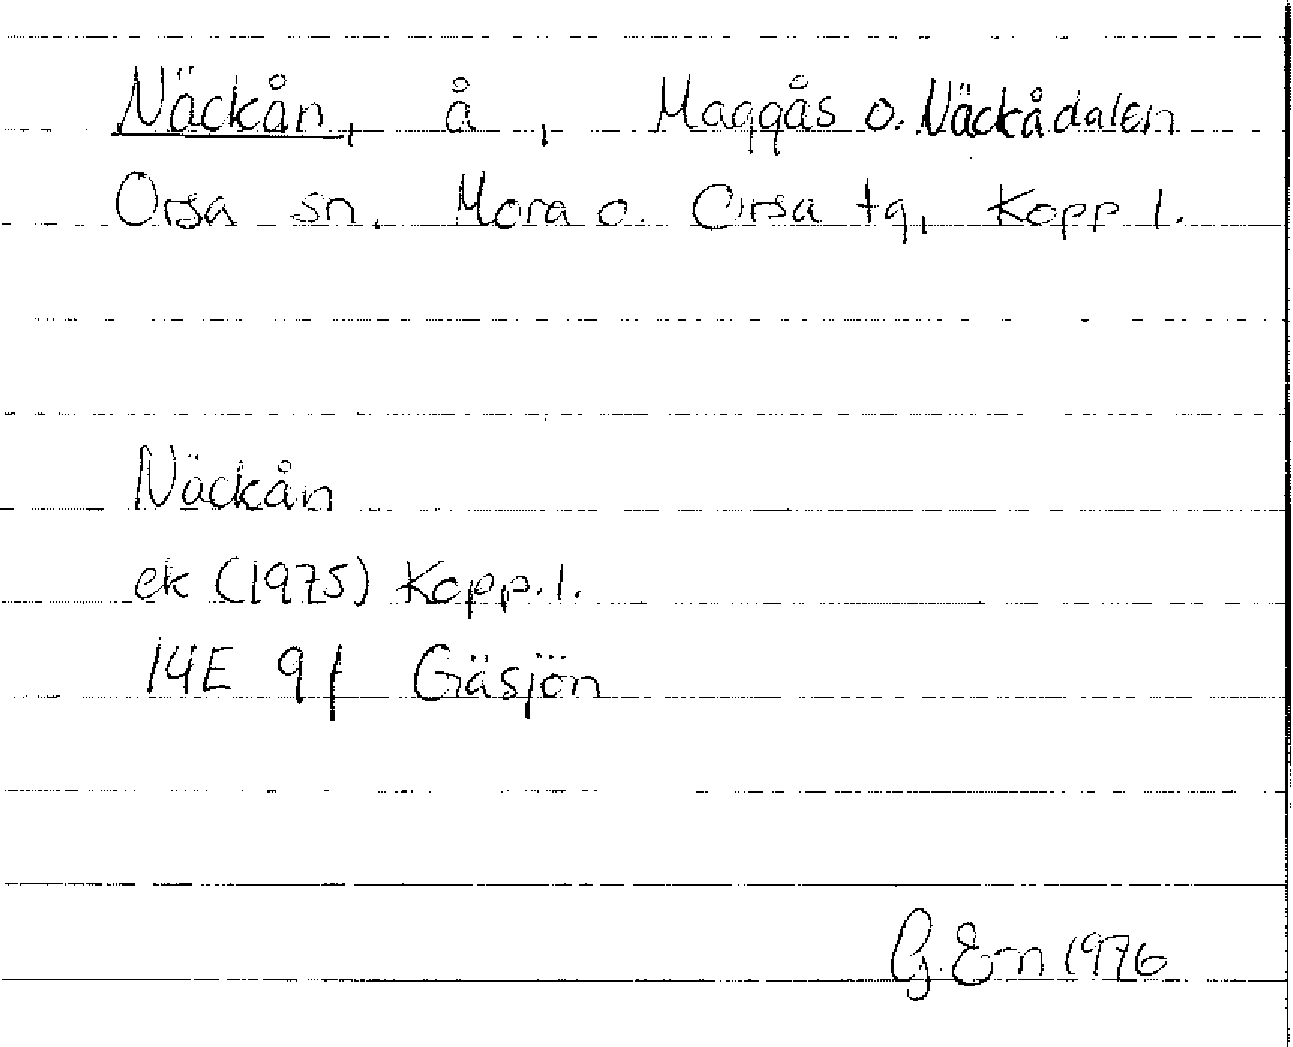 Näckån, å, Maggås o. Näckådalen
Orsa sn. Mora o. Orsa tg, Kopp l.
Näckån
ek (1975) Kopp. l.
14E 9f Gäsjön
G. Em 1976